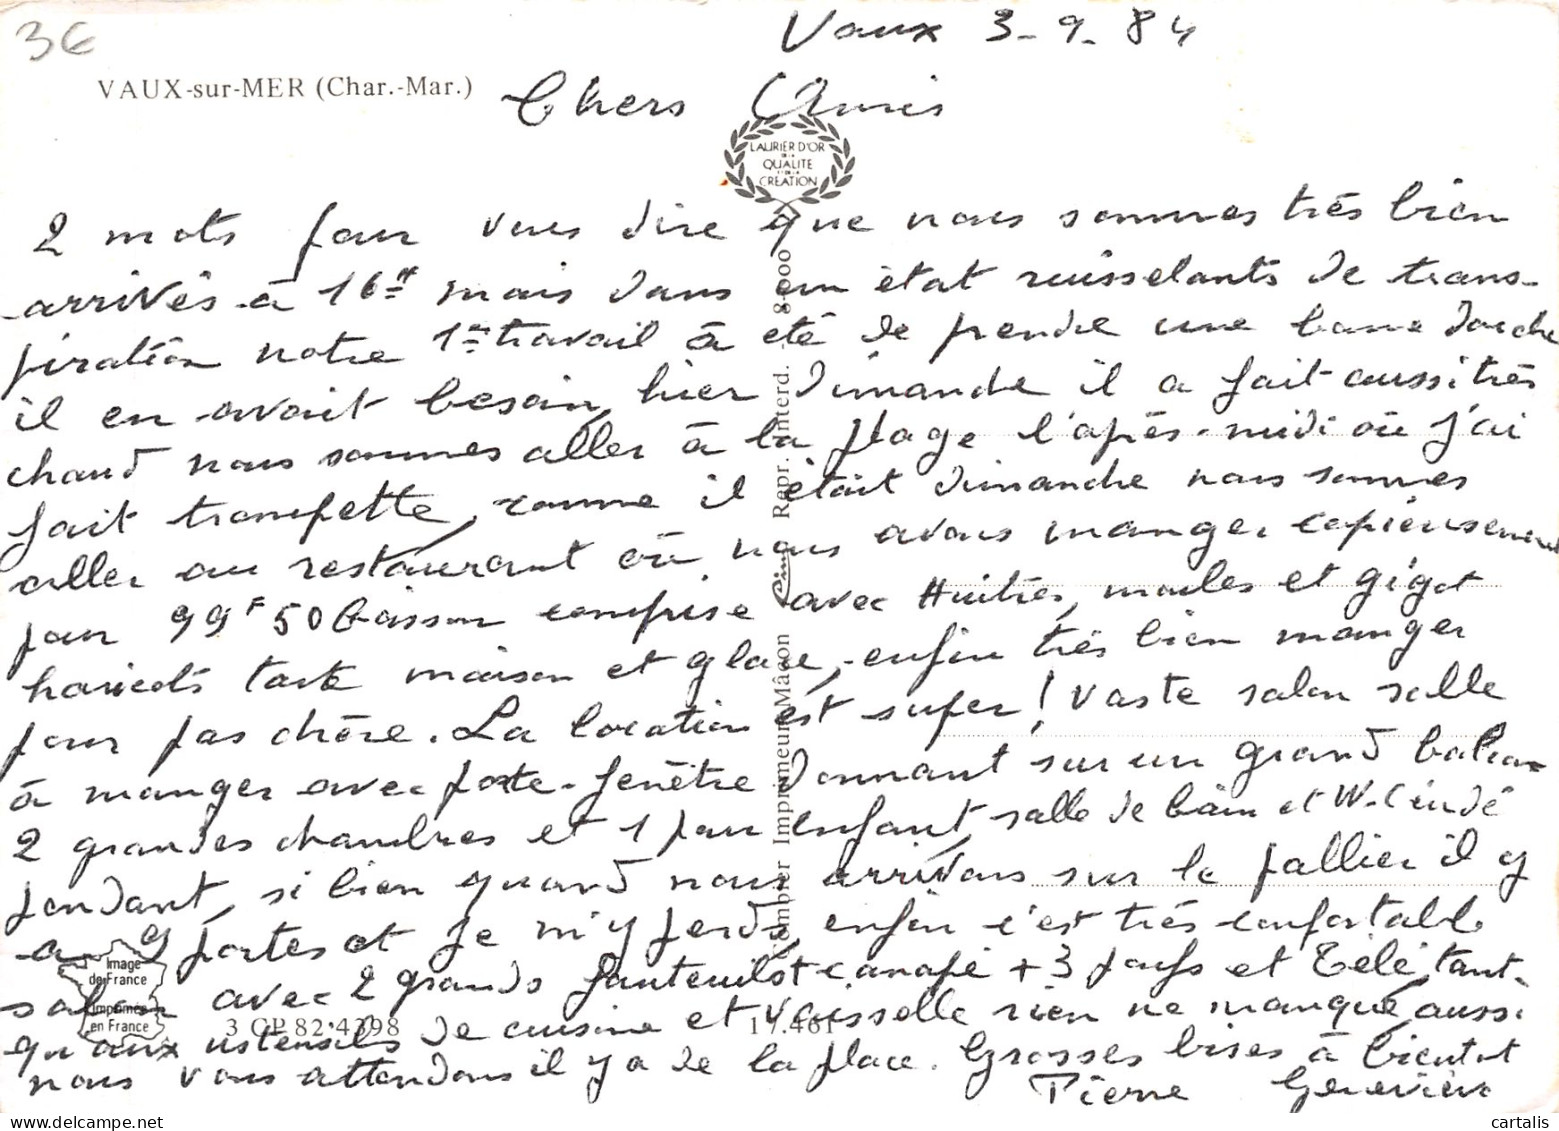 3€
Vaux 3-9-84
VAUX-sur-MER (Char.-Mar.)
Chers Amis
LAURIER D'OR
DE LA
QUALITE
ET DE LA
CREATION
2 mots pour vous dire que nous sommes très bien
arrivés à 16H mais dans un état ruisselants de trans-
piration notre 1er travail à été de prendre une bonne douche
il en avait besoin, hier dimanche il a fait aussi très
chaud nous sommes aller à la plage l'après-midi où j'ai
fait trempette, comme il était dimanche nous sommes
aller au restaurant où nous avons manger copieusement
pour 99F50 boisson comprise avec Huitres, moules et gigot
haricots tarte maison et glace, enfin très bien manger
pour pas chère. La location est super! Vaste salon salle
à manger avec porte-fenêtre donnant sur un grand balcon
2 grandes chambres et 1 pour enfant, salle de bain et W-C indé
pendant, si bien quand nous arrivons sur le pallier il y
a 9 portes et je m'y perds, enfin c'est très confortable
salon avec 2 grands fauteuils+canapé + 3 poufs et Télé, tant
qu'aux ustensiles de cuisine et vaisselle rien ne manque, aussi
nous vous attendons il y a de la place. Grosses bises à bientot
Pierre Geneviève
Image
de France
Imprimée
en France
3 CP 82-4398
17.461
Combier Imprimeur Mâcon Cim Repr. interd. - 8-000
cartalis